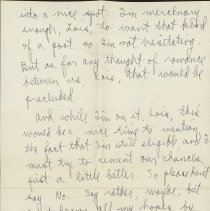 into a nice spot. I'm mercenary
enough, Lois, to want that kind
of a post so I'm not hesitating.
But as for any thought of romance
between us, Lois, that would be
precluded.
And while I'm on it, Lois, this
would be a nice time to mention
the fact that I'm still eligible, and I
must try to cement our chances
just a little better. So please don't
say No. Say rather, maybe, but
all my hopes by